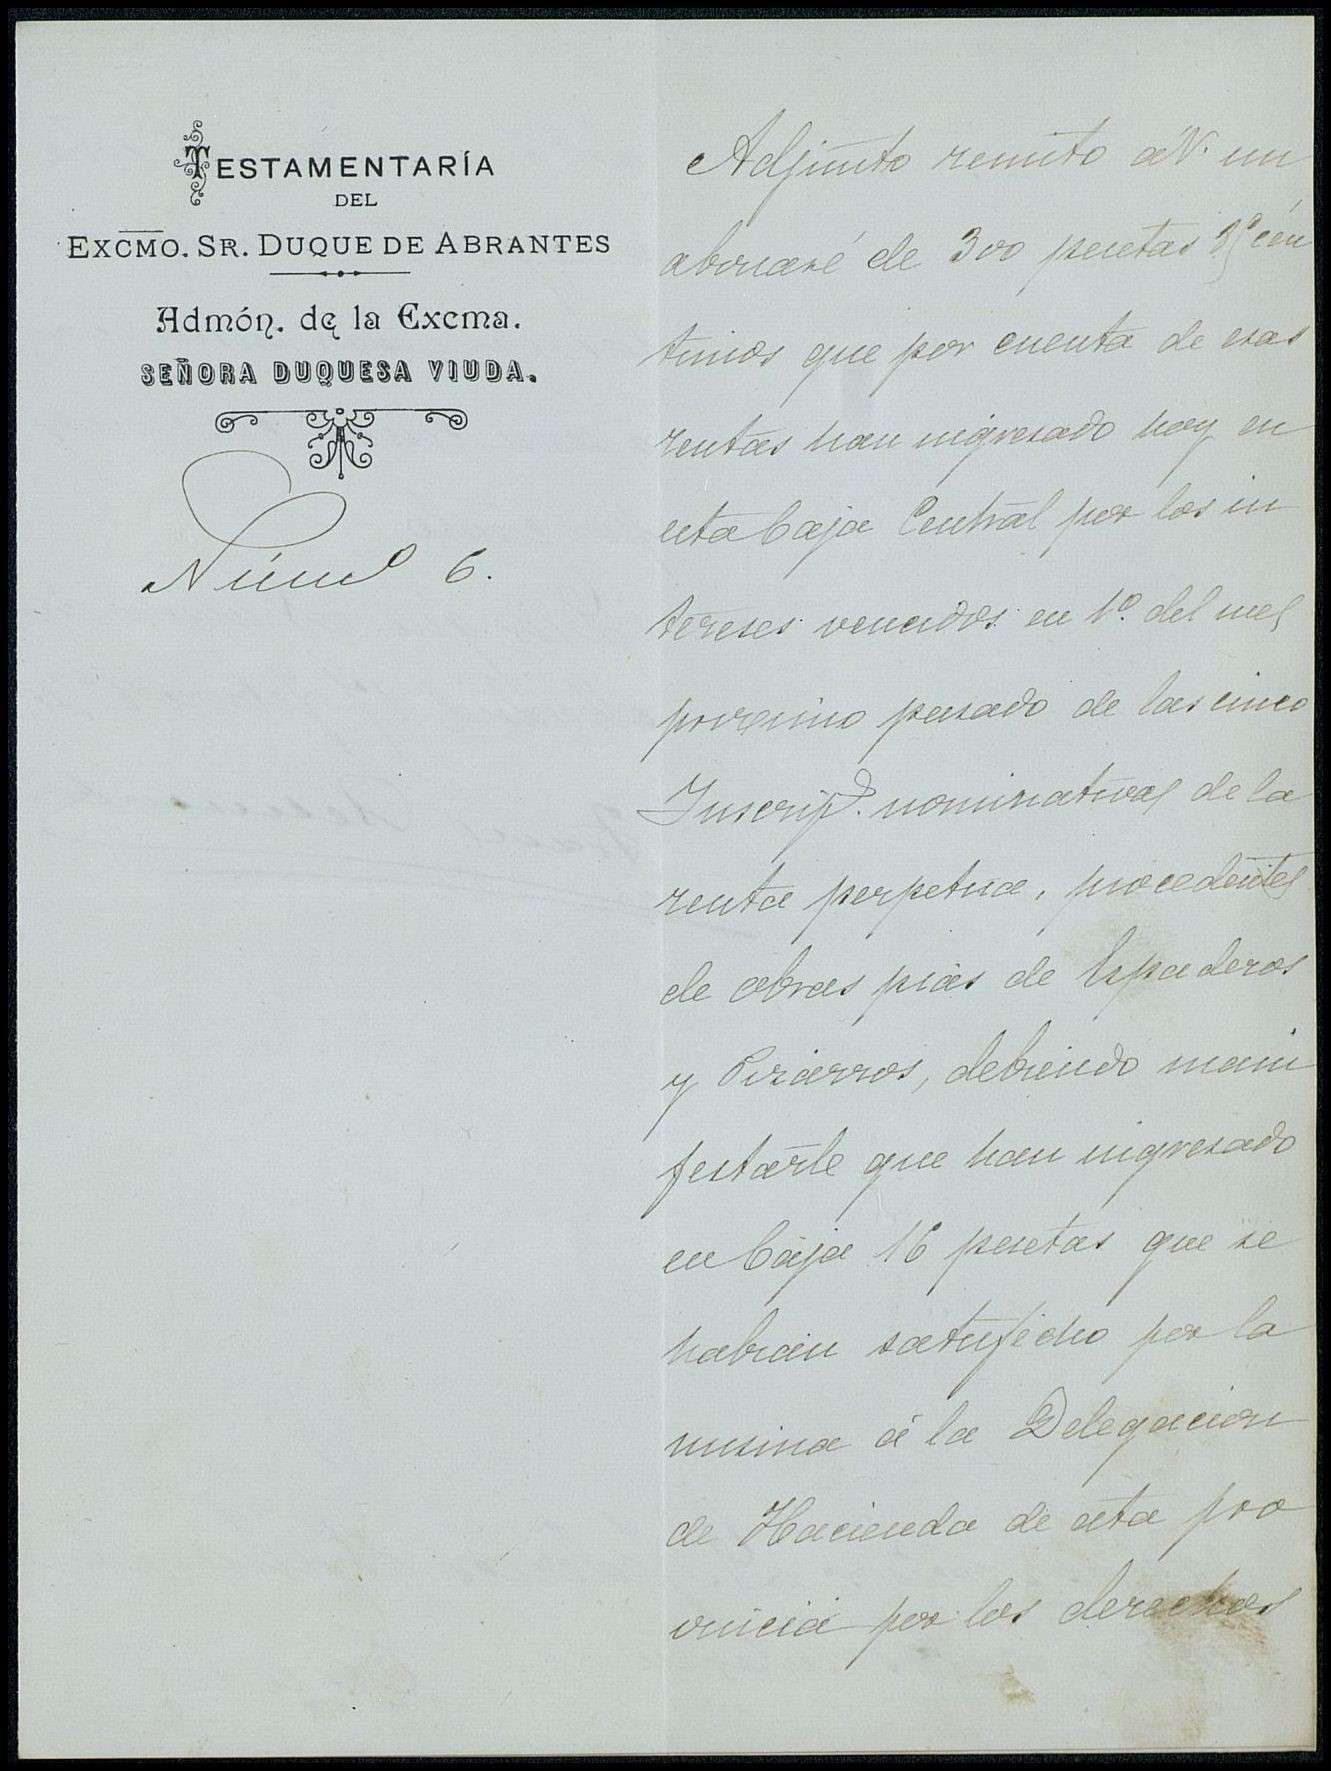 TESTAMENTARÍA
DEL
EXCMO. SR. DUQUE DE ABRANTES
Admón. de la Excma.
SEÑORA DUQUESA VIUDA.
Núm.º 6.
Adjunto remito á V. un
abonaré de 300 pesetas cén
timos que por cuenta de esas
rentas han ingresado hoy en
esta Caja Central por los in
tereses vencidos en 1º. del mes
proximo pasado de las cinco
Inscrip.s nominativas de la
renta perpetua, procedentes
de obras pias de Espaderos
y Pizarros, debiendo mani
festarle que han ingresado
en Caja 16 pesetas que se
habian satisfecho por la
misma á la Delegacion
de Hacienda de esta pro
vincia por los derechos